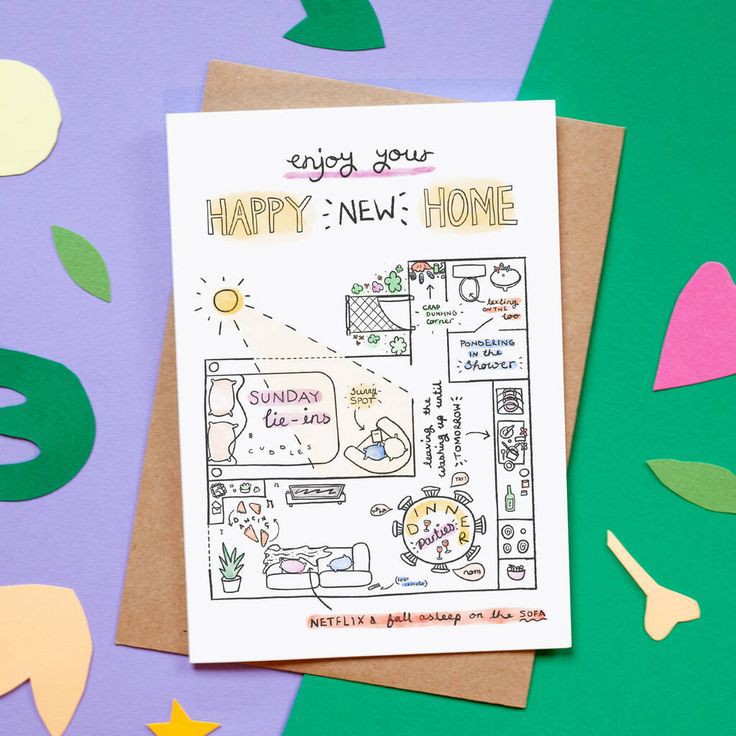 enjoy your
HAPPY NEW HOME
CRAP
DUMPING
corner
texting
ON THE
loo
PONDERING
IN the
shower
SUNDAY
lie-ins
&
CUDDLES
Sunny
SPOT
leaving the
washing up until
TOMORROW
YAY!
DANCING
DINNER
Parties
nom
lost remote
NETFLIX & fall asleep on the SOFA